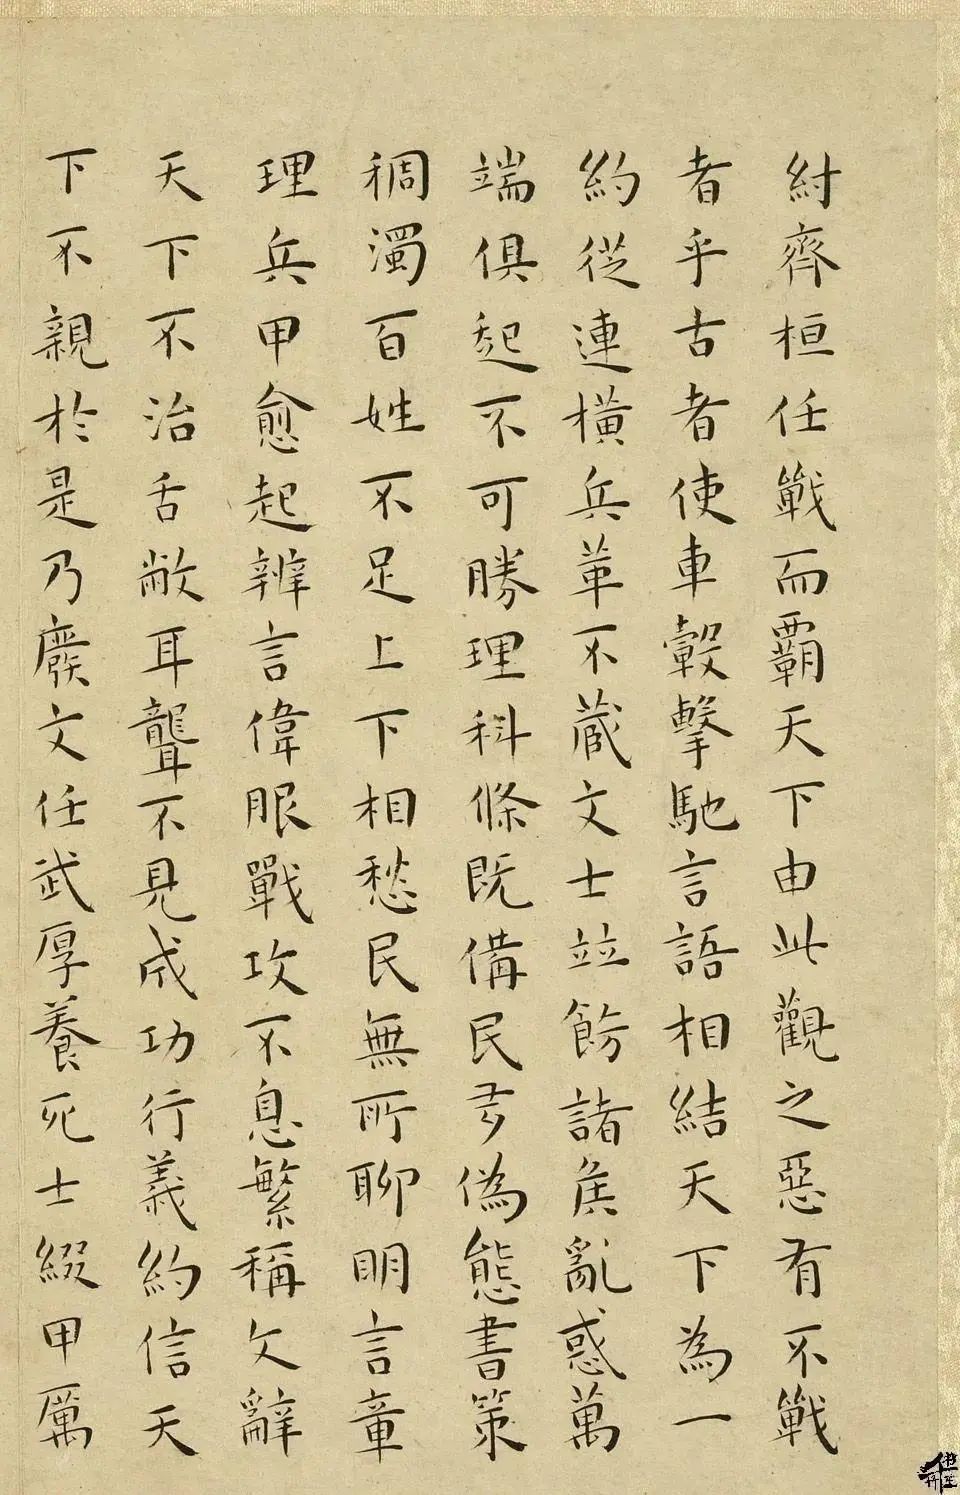 紂齊桓任戰而霸天下由此觀之惡有不戰
者乎古者使車轂擊馳言語相結天下為一
約從連橫兵革不藏文士竝飭諸侯亂惑萬
端俱起不可勝理科條既備民多偽態書策
稠濁百姓不足上下相愁民無所聊明言章
理兵甲愈起辨言偉服戰攻不息繁稱文辭
天下不治舌敝耳聾不見成功行義約信天
下不親於是乃廢文任武厚養死士綴甲厲